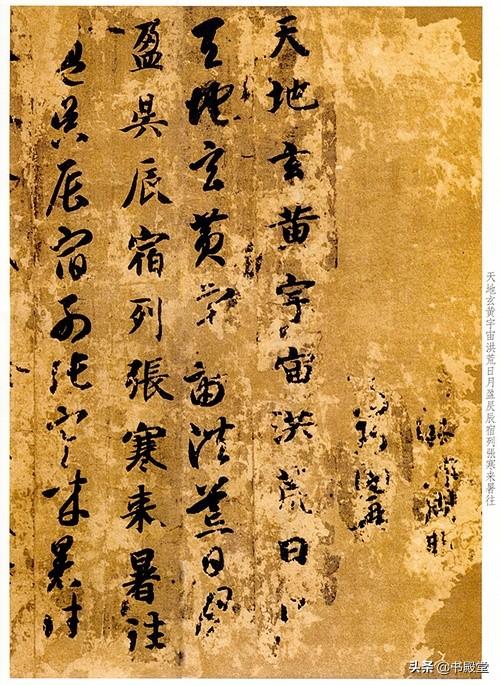 天地玄黃宇宙洪荒日月盈昃辰宿列張寒来暑往
天地玄黄宇宙洪荒日月
天地玄黄宇宙洪荒日月
盈昃辰宿列張寒来暑往
盈昃辰宿列張寒来暑往
头条 @书殿堂